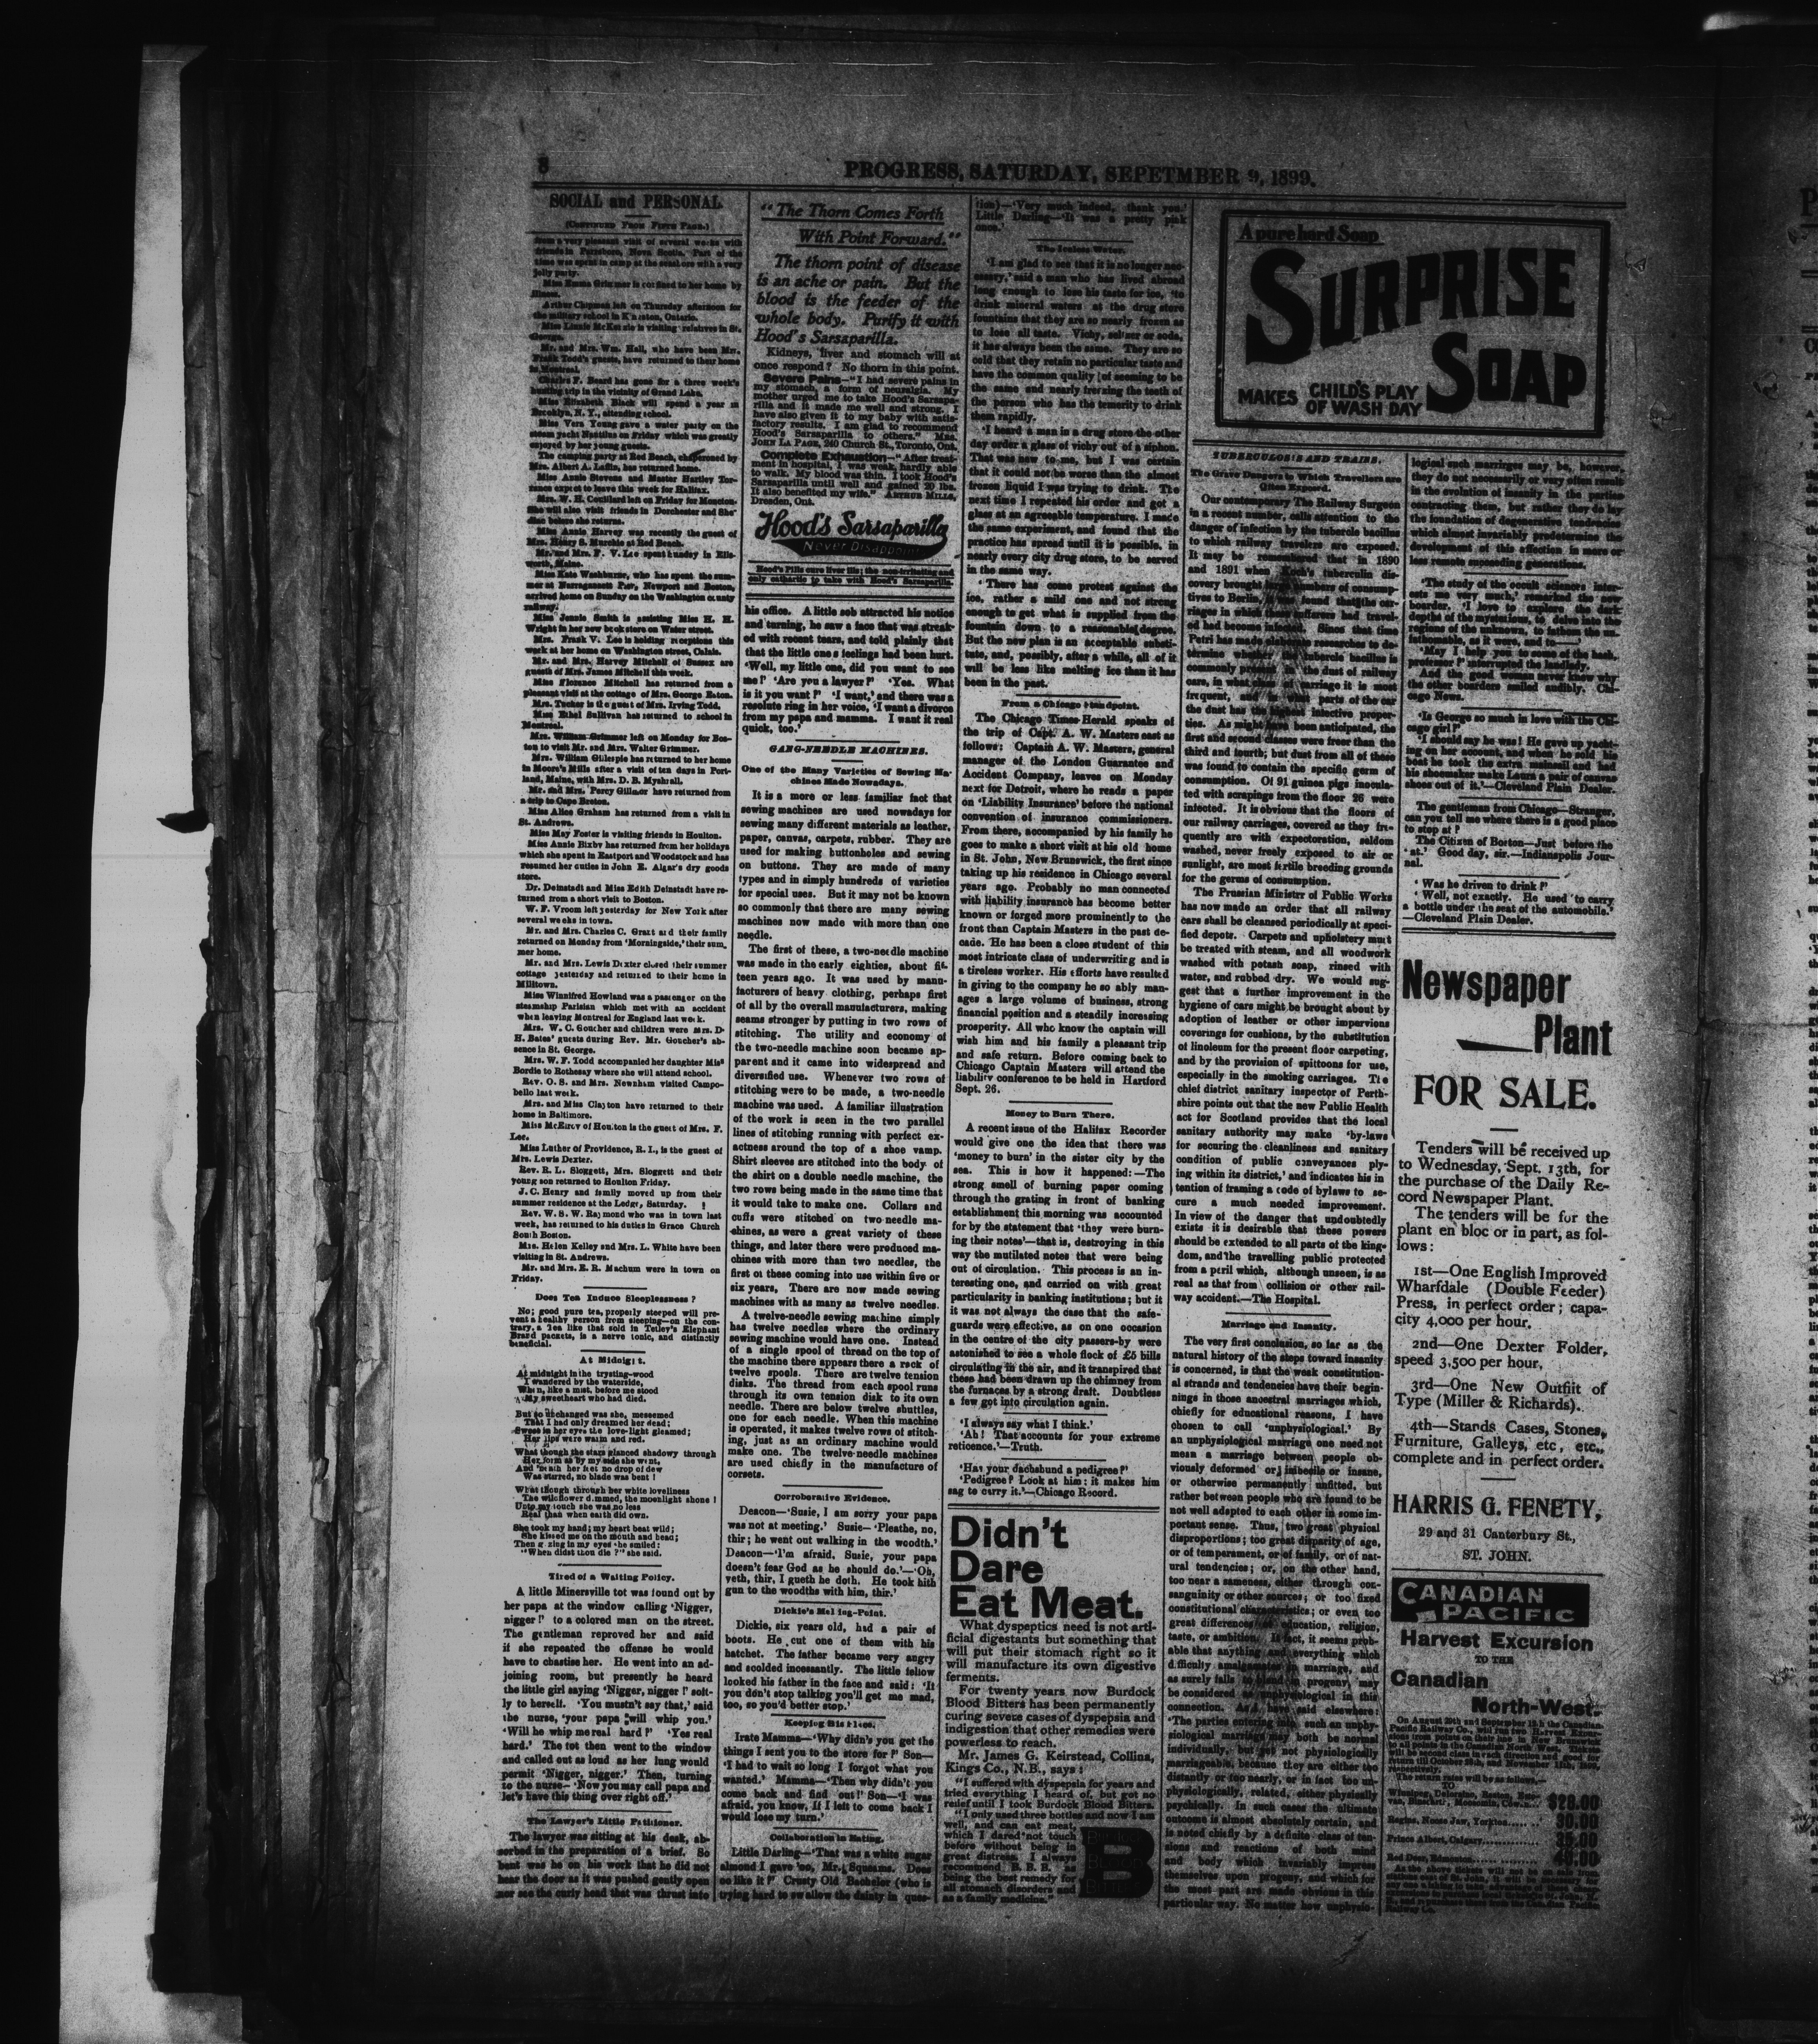 8
PROGRESS, SATURDAY, SEPETMBER 9, 1899.
SOCIAL and PERSONAL
(CONTINUED FROM FIFTH PAGE.)
from a very pleasant visit of several weeks with
friends in Parrsboro, Nova Scotia. Part of the
time was spent in camp at the seashore with a very
jolly party.
Miss Emma Grimmer is confined to her home by
illness.
Arthur Chipman left on Thursday afternoon for
the military school in Kingston, Ontario.
Miss Lizzie McKenzie is visiting relatives in St.
George.
Mr. and Mrs. Wm. Hall, who have been Mrs.
Frank Todd's guests, have returned to their home
in Montreal.
Charles F. Beard has gone for a three week's
hunting trip in the vicinity of Grand Lake.
Miss Elizabeth Black will spend a year in
Brooklyn, N. Y., attending school.
Miss Vera Young gave a water party on the
steam yacht Nautilus on Friday which was greatly
enjoyed by her young guests.
The camping party at Red Beach, chaperoned by
Mrs. Albert A. Laflin, has returned home.
Miss Annie Stevens and Master Hartley Tor-
rance expect to leave this week for Halifax.
Mrs. W. H. Coulllard left on Friday for Moncton.
She will also visit friends in Dorchester and She-
diac before she returns.
Miss Annie Harvey was recently the guest of
Mrs. Henry S. Murchie at Red Beach.
Mr. and Mrs. F. V. Lee spent Sunday in Ells-
worth, Maine.
Miss Kate Washburne, who has spent the sum-
mer at Narragansett Pier, Newport and Boston,
arrived home on Sunday on the Washington county
railway.
Miss Jennie Smith is assisting Miss H. H.
Wright in her new book store on Water street.
Mrs. Frank V. Lee is holding receptions this
week at her home on Washington street, Calais.
Mr. and Mrs. Harvey Mitchell of Sussex are
guests of Mrs. James Mitchell this week.
Miss Florence Mitchell has returned from a
pleasant visit at the cottage of Mrs. George Eaton.
Mrs. Tucker is the guest of Mrs. Irving Todd.
Miss Ethel Sullivan has returned to school in
Montreal.
Mrs. William Grimmer left on Monday for Bos-
ton to visit Mr. and Mrs. Walter Grimmer.
Mrs. William Gillespie has returned to her home
in Moore's Mills after a visit of ten days in Port-
land, Maine, with Mrs. D. B. Myshrall.
Mr. and Mrs. Percy Gillmor have returned from
a trip to Cape Breton.
Miss Alice Graham has returned from a visit in
St. Andrews.
Miss May Foster is visiting friends in Houlton.
Miss Annie Bixby has returned from her holidays
which she spent in Eastport and Woodstock and has
resumed her duties in John E. Algar's dry goods
store.
Dr. Deinstadt and Miss Edith Deinstadt have re-
turned from a short visit to Boston.
W. F. Vroom left yesterday for New York after
several weeks in town.
Mr. and Mrs. Charles C. Grant and their family
returned on Monday from 'Morningside,' their sum.
mer home.
Mr. and Mrs. Lewis Dexter closed their summer
cottage yesterday and returned to their home in
Milltown.
Miss Winnifred Howland was a passenger on the
steamship Parisian which met with an accident
when leaving Montreal for England last week.
Mrs. W. C. Goucher and children were Mrs. D
H. Bates' guests during Rev. Mr. Goucher's ab-
sence in St. George.
Mrs. W. F. Todd accompanied her daughter Miss
Bordie to Rothesay where she will attend school.
Rev. O. S. and Mrs. Newnham visited Campo-
bello last week.
Mrs. and Miss Clayton have returned to their
home in Baltimore.
Miss McKircy of Houlton is the guest of Mrs. F.
Lee.
Miss Luther of Providence, R. I., is the guest of
Mrs. Lewis Dexter.
Rev. R. L. Sloggett, Mrs. Sloggett and their
young son returned to Houlton Friday.
J. C. Henry and family moved up from their
summer residence at the Ledge, Saturday.
Rev. W. S. W. Raymond who was in town last
week, has returned to his duties in Grace Church
South Boston.
Mrs. Helen Kelley and Mrs. L. White have been
visiting in St. Andrews.
Mr. and Mrs. E. R. Machum were in town on
Friday.
Does Tea Induce Sleeplessness?
No; good pure tea, properly steeped will pre-
vent a healthy person from sleeping—on the con-
trary, a Tea like that sold in Tetley's Elephant
Brand packets, is a nerve tonic, and distinctly
beneficial.
At Midnight.
At midnight in the trysting-wood
I wandered by the waterside,
When, like a mist, before me stood
My sweetheart who had died.
But so unchanged was she, meseemed
That I had only dreamed her dead;
Sweet in her eyes the love-light gleamed;
Her lips were warm and red.
What though the stars glanced shadowy through
Her form as by my side she went,
And 'neath her feet no drop of dew
Was starred, no blade was bent!
What though through her white loveliness
The wildflower dimmed, the moonlight shone!
Unto my touch she was no less
Real than when earth did own.
She took my hand; my heart beat wild;
She kissed me on the mouth and head;
Then gazing in my eyes she smiled:
"When didst thou die?" she said.
Tired of a Waiting Policy.
A little Minersville tot was found out by
her papa at the window calling 'Nigger,
nigger!' to a colored man on the street.
The gentleman reproved her and said
if she repeated the offense he would
have to chastise her. He went into an ad-
joining room, but presently he heard
the little girl saying 'Nigger, nigger!' soft-
ly to herself. 'You mustn't say that,' said
the nurse, 'your papa will whip you.'
'Will he whip me real hard?' 'Yes real
hard.' The tot then went to the window
and called out as loud as her lung would
permit 'Nigger, nigger.' Then, turning
to the nurse—'Now you may call papa and
let's have this thing over right off.'
The Lawyer's Little Petitioner.
The lawyer was sitting at his desk, ab-
sorbed in the preparation of a brief. So
bent was he on his work that he did not
hear the door as it was pushed gently open
nor see the curly head that was thrust into
"The Thorn Comes Forth
With Point Forward."
The thorn point of disease
is an ache or pain. But the
blood is the feeder of the
whole body. Purify it with
Hood's Sarsaparilla.
Kidneys, liver and stomach will at
once respond? No thorn in this point.
Severe Pains—"I had severe pains in
my stomach, a form of neuralgia. My
mother urged me to take Hood's Sarsapa-
rilla and it made me well and strong. I
have also given it to my baby with satis-
factory results. I am glad to recommend
Hood's Sarsaparilla to others." MRS.
JOHN LA PAGE, 240 Church St., Toronto, Ont.
Complete Exhaustion—"After treat-
ment in hospital, I was weak, hardly able
to walk. My blood was thin. I took Hood's
Sarsaparilla until well and gained 20 lbs.
It also benefited my wife." ARTHUR MILLS,
Dresden, Ont.
Hood's Sarsaparilla
Never Disappoints
Hood's Pills cure liver ills; the non-irritating and
only cathartic to take with Hood's Sarsaparilla.
his office. A little sob attracted his notice
and turning, he saw a face that was streak-
ed with recent tears, and told plainly that
that the little one s feelings had been hurt.
'Well, my little one, did you want to see
me?' 'Are you a lawyer?' 'Yes. What
is it you want?' 'I want,' and there was a
resolute ring in her voice, 'I want a divorce
from my papa and mamma. I want it real
quick, too.'
GANG-NEEDLE MACHINES.
One of the Many Varieties of Sewing Ma-
chines Made Nowadays.
It is a more or less familiar fact that
sewing machines are used nowadays for
sewing many different materials as leather,
paper, canvas, carpets, rubber. They are
used for making buttonholes and sewing
on buttons. They are made of many
types and in simply hundreds of varieties
for special uses. But it may not be known
so commonly that there are many sewing
machines now made with more than one
needle.
The first of these, a two-needle machine
was made in the early eighties, about fif-
teen years ago. It was used by manu-
facturers of heavy clothing, perhaps first
of all by the overall manufacturers, making
seams stronger by putting in two rows of
stitching. The utility and economy of
the two-needle machine soon became ap-
parent and it came into widespread and
diversified use. Whenever two rows of
stitching were to be made, a two-needle
machine was used. A familiar illustration
of the work is seen in the two parallel
lines of stitching running with perfect ex-
actness around the top of a shoe vamp.
Shirt sleeves are stitched into the body of
the shirt on a double needle machine, the
two rows being made in the same time that
it would take to make one. Collars and
cuffs were stitched on two-needle ma-
chines, as were a great variety of these
things, and later there were produced ma-
chines with more than two needles, the
first of these coming into use within five or
six years, There are now made sewing
machines with as many as twelve needles.
A twelve-needle sewing machine simply
has twelve needles where the ordinary
sewing machine would have one. Instead
of a single spool of thread on the top of
the machine there appears there a rack of
twelve spools. There are twelve tension
disks. The thread from each spool runs
through its own tension disk to its own
needle. There are below twelve shuttles,
one for each needle. When this machine
is operated, it makes twelve rows of stitch-
ing, just as an ordinary machine would
make one. The twelve-needle machines
are used chiefly in the manufacture of
corsets.
Corroborative Evidence.
Deacon—'Susie, I am sorry your papa
was not at meeting.' Susie—'Pleathe, no,
thir; he went out walking in the woodth.'
Deacon—'I'm afraid, Susie, your papa
doesn't fear God as he should do.'—'Oh,
yeth, thir, I gueth he doth. He took hith
gun to the woodths with him, thir.'
Dickie's Melting-Point.
Dickie, six years old, had a pair of
boots. He cut one of them with his
hatchet. The father became very angry
and scolded incessantly. The little fellow
looked his father in the face and said: 'If
you don't stop talking you'll get me mad,
too, so you'd better stop.'
Keeping His Place.
Irate Mamma—'Why didn't you get the
things I sent you to the store for?' Son—
'I had to wait so long I forgot what you
wanted.' Mamma—'Then why didn't you
come back and find out!' Son—'I was
afraid, you know, If I left to come back I
would lose my turn.'
Collaboration in Eating.
Little Darling—'That was a white sugar
almond I gave 'oo, Mr. Squeams. Does
oo like it?' Crusty Old Bachelor (who is
trying hard to swallow the dainty in ques-
tion)—'Very much indeed, thank you.'
Little Darling—'It was a pretty pink
once.'
The Iceless Water.
'I am glad to see that it is no longer nec-
essary,' said a man who has lived abroad
long enough to lose his taste for ice, 'to
drink mineral waters at the drug store
fountains that they are so nearly frozen as
to lose all taste. Vichy, seltzer or soda,
it has always been the same. They are so
cold that they retain no particular taste and
have the common quality of seeming to be
the same and nearly freezing the teeth of
the person who has the temerity to drink
them rapidly.
'I heard a man in a drug store the other
day order a glass of vichy out of a siphon.
That was new to me, but I was certain
that it could not be worse than the almost
frozen liquid I was trying to drink. The
next time I repeated his order and got a
glass at an agreeable temperature. I made
the same experiment, and found that the
practice has spread until it is possible, in
nearly every city drug store, to be served
in the same way.
'There has come protest against the
ice, rather a mild one and not strong
enough to get what is supplied from the
fountain down to a reasonable degree.
But the new plan is an acceptable substi-
tute, and, possibly, after a while, all of it
will be less like melting ice than it has
been in the past.
From a Chicago Standpoint.
The Chicago Times-Herald speaks of
the trip of Capt. A. W. Masters east as
follows: Captain A. W. Masters, general
manager of the London Guarantee and
Accident Company, leaves on Monday
next for Detroit, where he reads a paper
on 'Liability Insurance' before the national
convention of insurance commissioners.
From there, accompanied by his family he
goes to make a short visit at his old home
in St. John, New Brunswick, the first since
taking up his residence in Chicago several
years ago. Probably no man connected
with liability insurance has become better
known or forged more prominently to the
front than Captain Masters in the past de-
cade. He has been a close student of this
most intricate class of underwriting and is
a tireless worker. His efforts have resulted
in giving to the company he so ably man-
ages a large volume of business, strong
financial position and a steadily increasing
prosperity. All who know the captain will
wish him and his family a pleasant trip
and safe return. Before coming back to
Chicago Captain Masters will attend the
liability conference to be held in Hartford
Sept. 26.
Money to Burn There.
A recent issue of the Halifax Recorder
would give one the idea that there was
'money to burn' in the sister city by the
sea. This is how it happened:—The
strong smell of burning paper coming
through the grating in front of banking
establishment this morning was accounted
for by the statement that 'they were burn-
ing their notes'—that is, destroying in this
way the mutilated notes that were being
out of circulation. This process is an in-
teresting one, and carried on with great
particularity in banking institutions; but it
it was not always the case that the safe-
guards were effective, as on one occasion
in the centre of the city passers-by were
astonished to see a whole flock of £5 bills
circulating in the air, and it transpired that
these had been drawn up the chimney from
the furnaces by a strong draft. Doubtless
a few got into circulation again.
'I always say what I think.'
'Ah! That accounts for your extreme
reticence.'—Truth.
'Has your dachshund a pedigree?'
'Pedigree? Look at him; it makes him
sag to carry it.'—Chicago Record.
Didn't
Dare
Eat Meat.
What dyspeptics need is not arti-
ficial digestants but something that
will put their stomach right so it
will manufacture its own digestive
ferments.
For twenty years now Burdock
Blood Bitters has been permanently
curing severe cases of dyspepsia and
indigestion that other remedies were
powerless to reach.
Mr. James G. Keirstead, Collins,
Kings Co., N.B., says:
"I suffered with dyspepsia for years and
tried everything I heard of, but got no
relief until I took Burdock Blood Bitters.
"I only used three bottles and now I am
well, and can eat meat,
which I dared not touch
before without being in
great distress. I always
recommend B. B. B. as
being the best remedy for
all stomach disorders and
as a family medicine."
B
A pure hard Soap
SURPRISE
SOAP
MAKES CHILD'S PLAY
OF WASH DAY
TUBERCULOSIS AND TRAINS.
The Grave Dangers to Which Travellers are
Often Exposed.
Our contemporary The Railway Surgeon
in a recent number, calls attention to the
danger of infection by the tubercle bacillus
to which railway travelers are exposed.
It may be remembered that in 1890
and 1891 when Koch's tuberculin dis-
covery brought numbers of consump-
tives to Berlin, it was found that the car-
riages in which these sufferers had travel-
ed had become infected. Since that time
Petri has made elaborate researches to de-
termine whether tubercle bacillus is
commonly present the dust of railway
cars, in what class of carriage it is most
frequent, and in what parts of the car
the dust has the highest infective proper-
ties. As might have been anticipated, the
first and second classes were freer than the
third and fourth; but dust from all of these
was found to contain the specific germ of
consumption. Of 91 guinea pigs inocula-
ted with scrapings from the floor 26 were
infected. It is obvious that the floors of
our railway carriages, covered as they fre-
quently are with expectoration, seldom
washed, never freely exposed to air or
sunlight, are most fertile breeding grounds
for the germs of consumption.
The Prussian Minister of Public Works
has now made an order that all railway
cars shall be cleansed periodically at speci-
fied depots. Carpets and upholstery must
be treated with steam, and all woodwork
washed with potash soap, rinsed with
water, and rubbed dry. We would sug-
gest that a further improvement in the
hygiene of cars might be brought about by
adoption of leather or other impervious
coverings for cushions, by the substitution
of linoleum for the present floor carpeting,
and by the provision of spittoons for use,
especially in the smoking carriages. The
chief district sanitary inspector of Perth-
shire points out that the new Public Health
act for Scotland provides that the local
sanitary authority may make 'by-laws
for securing the cleanliness and sanitary
condition of public conveyances ply-
ing within its district,' and indicates his in
tention of framing a code of bylaws to se-
cure a much needed improvement.
In view of the danger that undoubtedly
exists it is desirable that these powers
should be extended to all parts of the king-
dom, and the travelling public protected
from a peril which, although unseen, is as
real as that from collision or other rail-
way accident.—The Hospital.
Marriage and Insanity.
The very first conclusion, so far as the
natural history of the steps toward insanity
is concerned, is that the weak constitution-
al strands and tendencies have their begin-
nings in those ancestral marriages which,
chiefly for educational reasons, I have
chosen to call 'unphysiological.' By
an unphysiological marriage one need not
mean a marriage between people ob-
viously deformed or imbecile or insane,
or otherwise permanently unfitted, but
rather between people who are found to be
not well adapted to each other in some im-
portant sense. Thus, two great physical
disproportions; too great disparity of age,
or of temperament, or of family, or of nat-
ural tendencies; or, on the other hand,
too near a sameness, either through con-
sanguinity or other sources; or too fixed
constitutional characteristics; or even too
great differences education, religion,
taste, or ambition. In fact, it seems prob-
able that anything and everything which
difficulty amalgamates marriage, and
as surely fails to blend in progeny, may
be considered as unphysiological in this
connection. As I have said elsewhere:
'The parties entering into such an unphy-
siological marriage may both be normal
individually, but yet not physiologically
marriageable, because they are either too
distantly or too nearly, or in fact too un-
physiologically, related, either physically
psychically. In such cases the ultimate
outcome is almost absolutely certain, and
is noted chiefly by a definite class of ten-
sions and reactions of both mind
and body which invariably impress
themselves upon progeny, and which for
the most part are made obvious in this
particular way. No matter how unphysio-
logical such marriages may be, however,
they do not necessarily or very often result
in the evolution of insanity in the parties
contracting them, but rather they do lay
the foundation of degenerative tendencies
which almost invariably predetermine the
development of this affection in more or
less remote succeeding generations.
'The study of the occult sciences inter-
ests me very much,' remarked the new
boarder. 'I love to explore the dark
depths of the mysterious, to delve into the
regions of the unknown, to fathom the un-
fathomable, as it were, and to——'
'May I help you to some of the hash,
professor?' interrupted the landlady.
And the good woman never knew why
the other boarders smiled audibly. Chi-
cago News.
'Is George so much in love with the Chi-
cago girl?'
'I should say he was! He gave up yacht-
ing on her account, and when he sold his
boat he took the extra mainsail and had
his shoemaker make Laura a pair of canvas
shoes out of it.'—Cleveland Plain Dealer.
The gentleman from Chicago—Stranger,
can you tell me where there is a good place
to stop at?
The Citizen of Boston—Just before the
'at.' Good day, sir.—Indianapolis Jour-
nal.
'Was he driven to drink?'
'Well, not exactly. He used to carry
a bottle under the seat of the automobile.'
—Cleveland Plain Dealer.
Newspaper
Plant
FOR SALE.
Tenders will be received up
to Wednesday, Sept. 13th, for
the purchase of the Daily Re-
cord Newspaper Plant.
The tenders will be for the
plant en bloc or in part, as fol-
lows:
1st—One English Improved
Wharfdale (Double Feeder)
Press, in perfect order; capa-
city 4,000 per hour.
2nd—One Dexter Folder,
speed 3,500 per hour,
3rd—One New Outfiit of
Type (Miller & Richards).
4th—Stands Cases, Stones,
Furniture, Galleys, etc, etc.,
complete and in perfect order.
HARRIS G. FENETY,
29 and 31 Canterbury St.,
ST. JOHN.
CANADIAN
PACIFIC
Harvest Excursion
TO THE
Canadian
North-West.
On August 29th and September 12th the Canadian
Pacific Railway Co., will run two Harvest Excur-
sions from points on their line in New Brunswick
to all points in the Canadian North West. Tickets
will be second class in each direction and good for
return till October 28th, and November 11th, 1899,
respectively.
The return rates will be as follows,—
TO
Winnipeg, Deloraine, Reston, Este-
van, Binscarth, Moosomin, Cowan.. $28.00
Regina, Moose Jaw, Yorkton...... 30.00
Prince Albert, Calgary........... 35.00
Red Deer, Edmonton............ 40.00